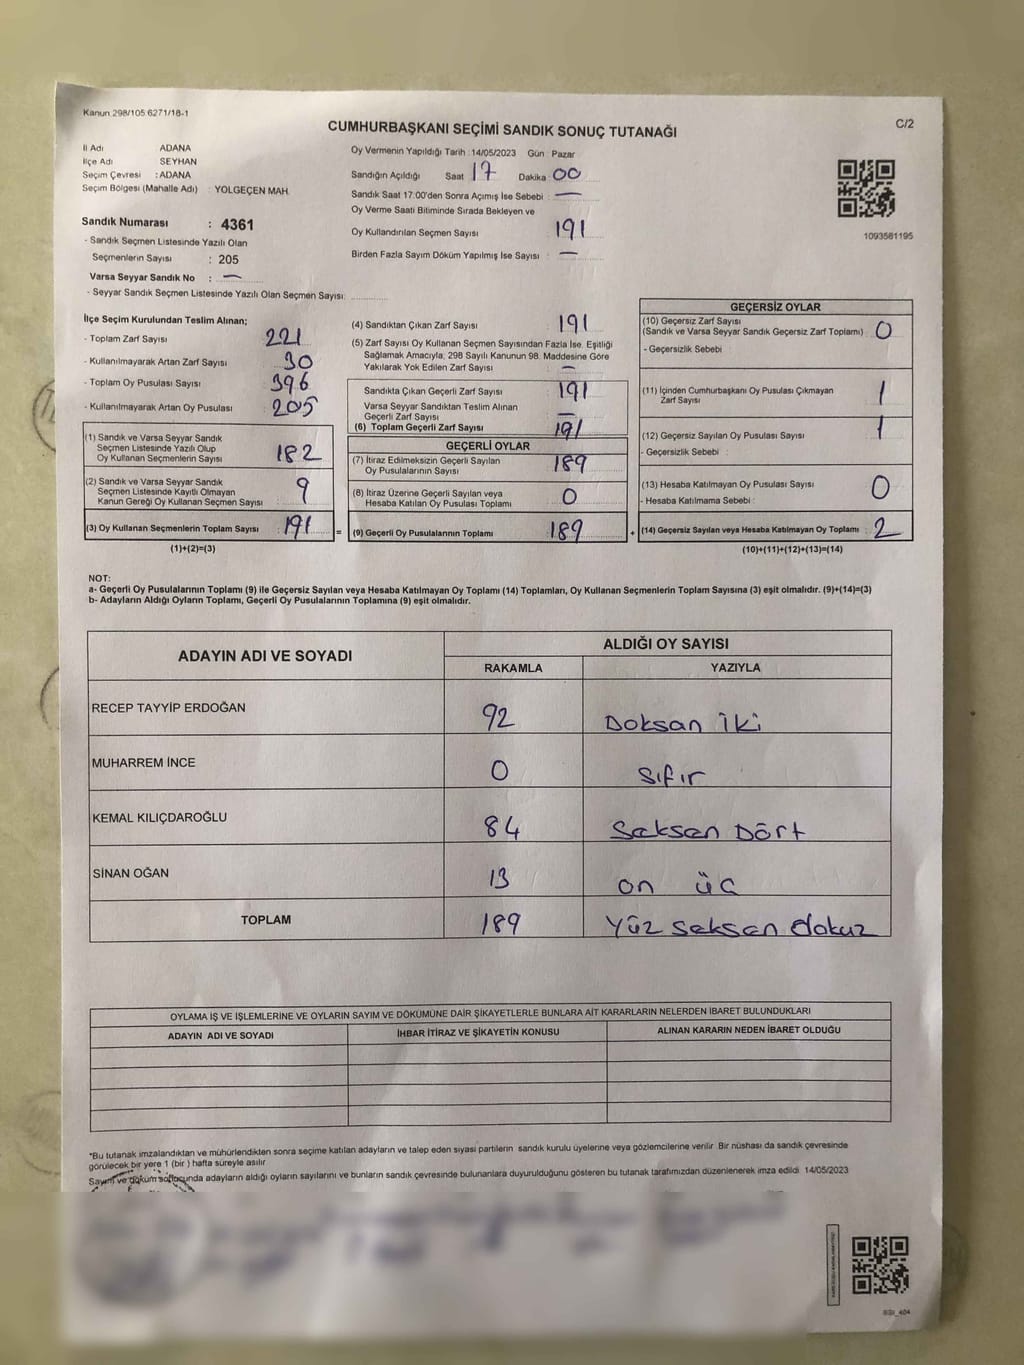 Kanun 298/105 6271/18-1
CUMHURBAŞKANI SEÇİMİ SANDIK SONUÇ TUTANAĞI
C/2
İl Adı ADANA
İlçe Adı SEYHAN
Seçim Çevresi : ADANA
Seçim Bölgesi (Mahalle Adı) : YOLGEÇEN MAH.
Sandık Numarası : 4361
- Sandık Seçmen Listesinde Yazılı Olan
Seçmenlerin Sayısı : 205
Varsa Seyyar Sandık No : —
- Seyyar Sandık Seçmen Listesinde Yazılı Olan Seçmen Sayısı:
Oy Vermenin Yapıldığı Tarih : 14/05/2023 Gün : Pazar
Sandığın Açıldığı Saat 17 Dakika 00
Sandık Saat 17:00'den Sonra Açımış İse Sebebi : —
Oy Verme Saati Bitiminde Sırada Bekleyen ve
Oy Kullandırılan Seçmen Sayısı 191
Birden Fazla Sayım Döküm Yapılmış İse Sayısı : —
1093581195
İlçe Seçim Kurulundan Teslim Alınan;
- Toplam Zarf Sayısı : 221
- Kullanılmayarak Artan Zarf Sayısı : 30
- Toplam Oy Pusulası Sayısı : 396
- Kullanılmayarak Artan Oy Pusulası : 205
(1) Sandık ve Varsa Seyyar Sandık
Seçmen Listesinde Yazılı Olup
Oy Kullanan Seçmenlerin Sayısı : 182
(2) Sandık ve Varsa Seyyar Sandık
Seçmen Listesinde Kayıtlı Olmayan
Kanun Gereği Oy Kullanan Seçmen Sayısı : 9
(3) Oy Kullanan Seçmenlerin Toplam Sayısı : 191 =
(1)+(2)=(3)
(4) Sandıktan Çıkan Zarf Sayısı : 191
(5) Zarf Sayısı Oy Kullanan Seçmen Sayısından Fazla İse, Eşitliği
Sağlamak Amacıyla; 298 Sayılı Kanunun 98. Maddesine Göre
Yakılarak Yok Edilen Zarf Sayısı : —
Sandıkta Çıkan Geçerli Zarf Sayısı : 191
Varsa Seyyar Sandıktan Teslim Alınan
Geçerli Zarf Sayısı : —
(6) Toplam Geçerli Zarf Sayısı : 191
GEÇERLİ OYLAR
(7) İtiraz Edilmeksizin Geçerli Sayılan
Oy Pusulalarının Sayısı : 189
(8) İtiraz Üzerine Geçerli Sayılan veya
Hesaba Katılan Oy Pusulası Toplamı : 0
(9) Geçerli Oy Pusulalarının Toplamı : 189 +
GEÇERSİZ OYLAR
(10) Geçersiz Zarf Sayısı
(Sandık ve Varsa Seyyar Sandık Geçersiz Zarf Toplamı) : 0
- Geçersizlik Sebebi :
(11) İçinden Cumhurbaşkanı Oy Pusulası Çıkmayan
Zarf Sayısı : 1
(12) Geçersiz Sayılan Oy Pusulası Sayısı : 1
- Geçersizlik Sebebi :
(13) Hesaba Katılmayan Oy Pusulası Sayısı : 0
- Hesaba Katılmama Sebebi :
(14) Geçersiz Sayılan veya Hesaba Katılmayan Oy Toplamı : 2
(10)+(11)+(12)+(13)=(14)
NOT:
a- Geçerli Oy Pusulalarının Toplamı (9) ile Geçersiz Sayılan veya Hesaba Katılmayan Oy Toplamı (14) Toplamları, Oy Kullanan Seçmenlerin Toplam Sayısına (3) eşit olmalıdır. (9)+(14)=(3)
b- Adayların Aldığı Oyların Toplamı, Geçerli Oy Pusulalarının Toplamına (9) eşit olmalıdır.
ADAYIN ADI VE SOYADI
ALDIĞI OY SAYISI
RAKAMLA YAZIYLA
RECEP TAYYİP ERDOĞAN 92 Doksan İki
MUHARREM İNCE 0 Sıfır
KEMAL KILIÇDAROĞLU 84 Seksen Dört
SİNAN OĞAN 13 on üç
TOPLAM 189 Yüz seksen dokuz
OYLAMA İŞ VE İŞLEMLERİNE VE OYLARIN SAYIM VE DÖKÜMÜNE DAİR ŞİKAYETLERLE BUNLARA AİT KARARLARIN NELERDEN İBARET BULUNDUKLARI
ADAYIN ADI VE SOYADI İHBAR İTİRAZ VE ŞİKAYETİN KONUSU ALINAN KARARIN NEDEN İBARET OLDUĞU
*Bu tutanak imzalandıktan ve mühürlendikten sonra seçime katılan adayların ve talep eden siyasi partilerin sandık kurulu üyelerine veya gözlemcilerine verilir Bir nüshası da sandık çevresinde
görülecek bir yere 1 (bir ) hafta süreyle asılır
Sayım ve döküm sonucunda adayların aldığı oyların sayılarını ve bunların sandık çevresinde bulunanlara duyurulduğunu gösteren bu tutanak tarafımızdan düzenlenerek imza edildi 14/05/2023